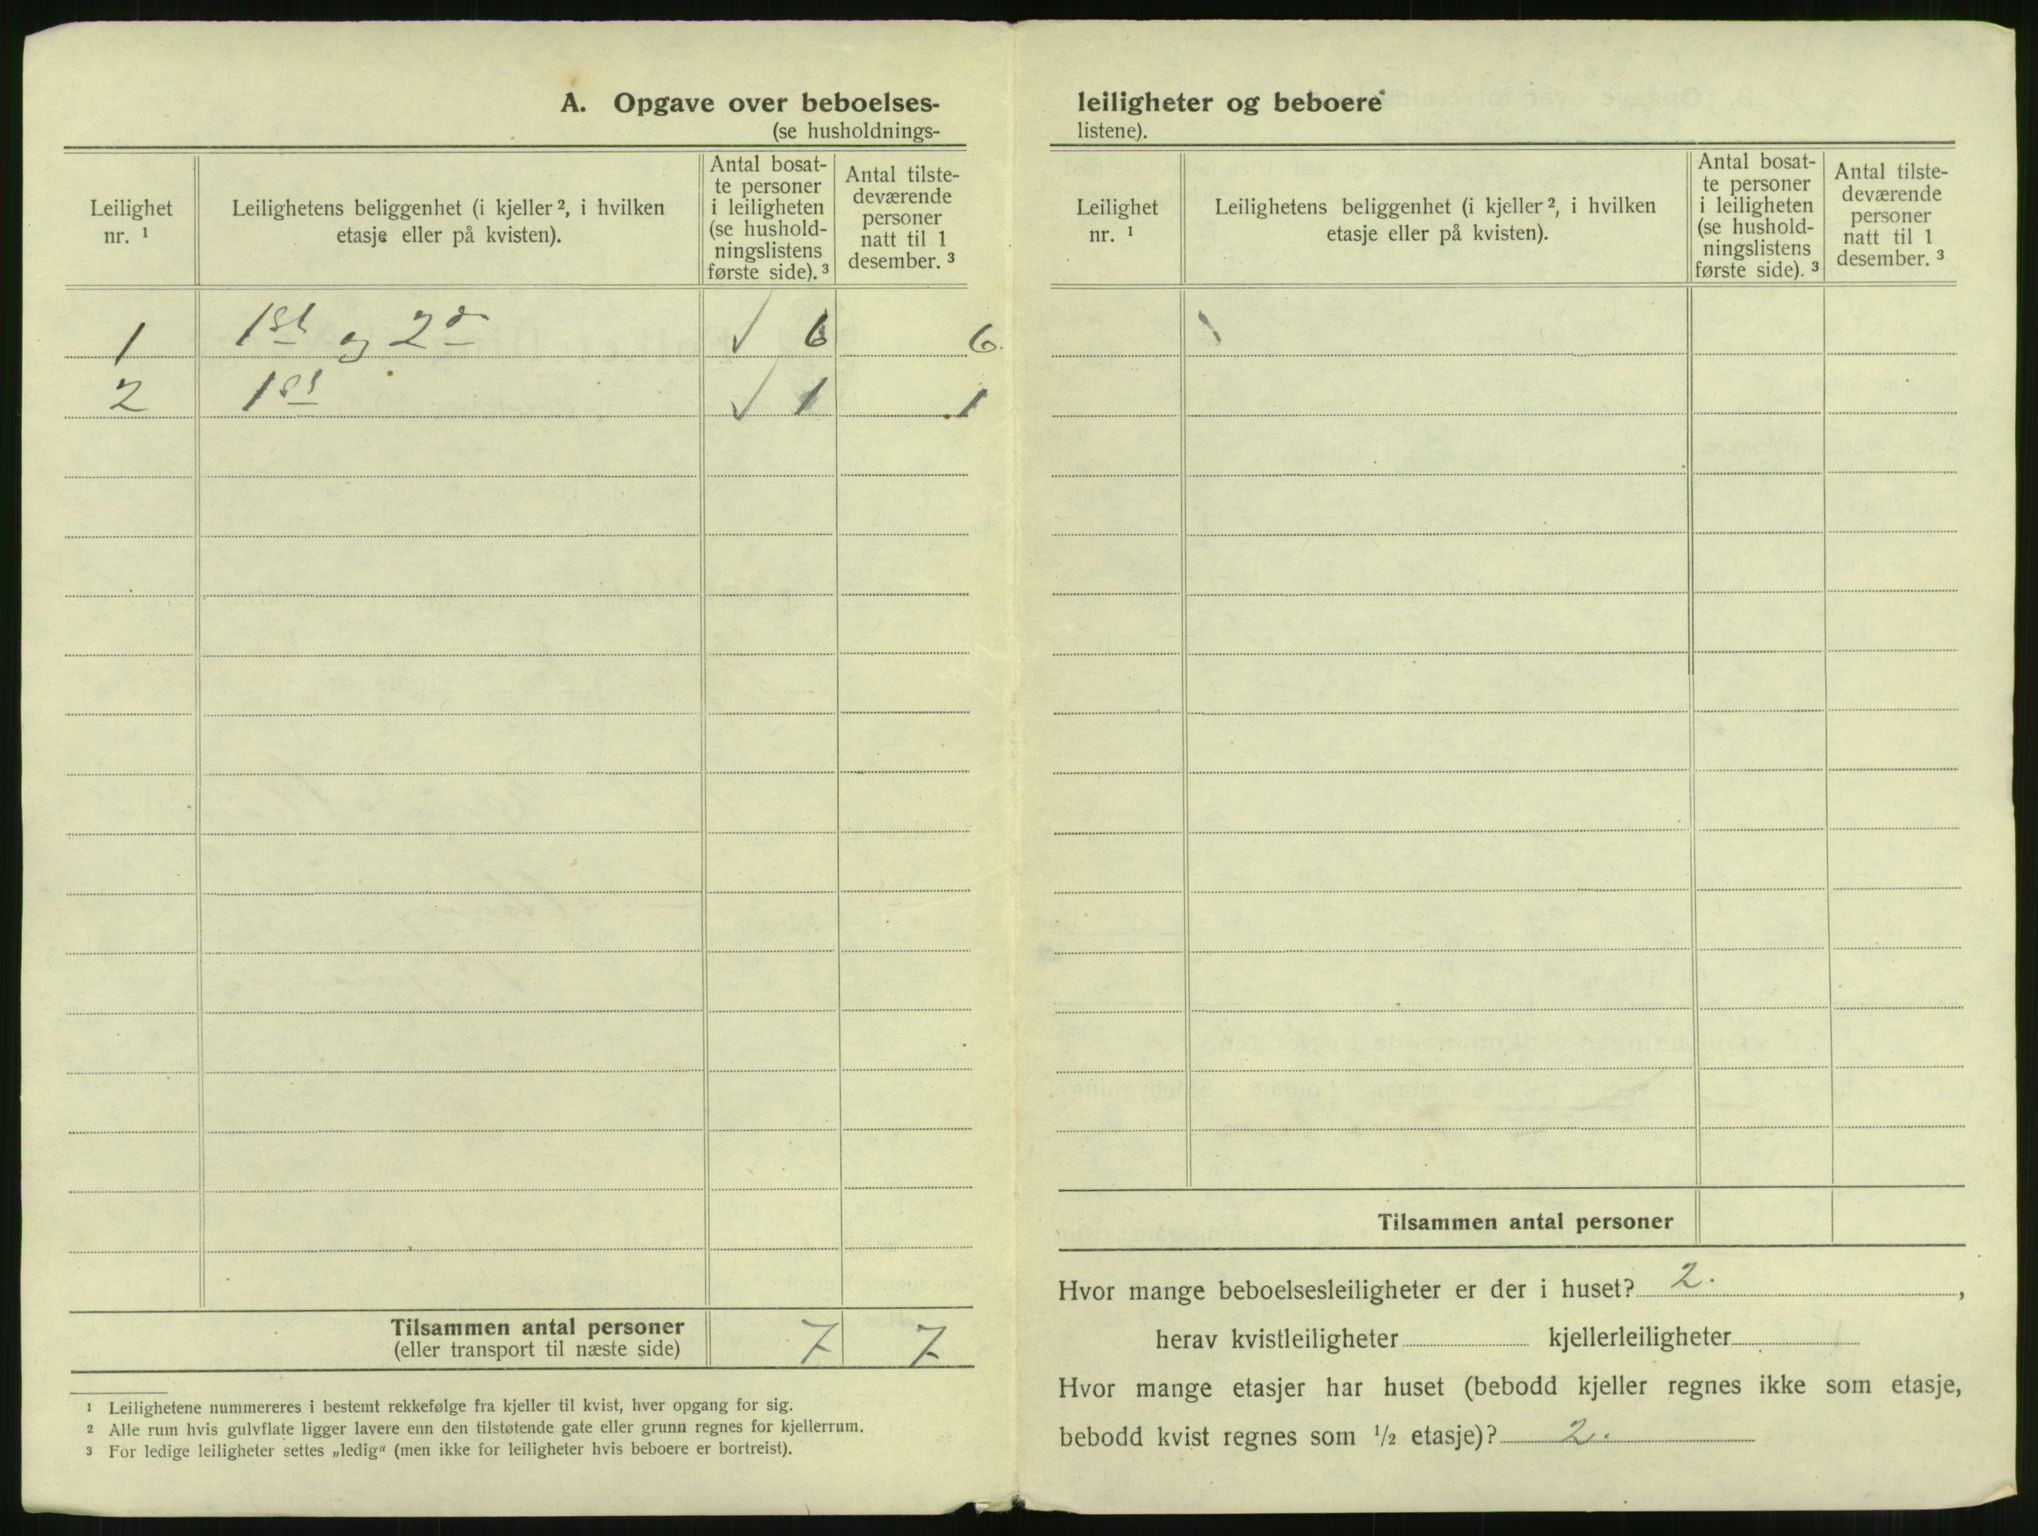 A. Opgave over beboelses-
(se husholdnings-
Leilighet
nr. ¹
Leilighetens beliggenhet (i kjeller ², i hvilken
etasje eller på kvisten).
Antal bosat-
te personer
i leiligheten
(se hushold-
ningslistens
første side). ³
Antal tilste-
deværende
personer
natt til 1
desember. ³
1 1st og 2d ✓ 6 6.
2 1st ✓ 1 1
Tilsammen antal personer 7 7
(eller transport til næste side)
¹ Leilighetene nummereres i bestemt rekkefølge fra kjeller til kvist, hver opgang for sig.
² Alle rum hvis gulvflate ligger lavere enn den tilstøtende gate eller grunn regnes for kjellerrum.
³ For ledige leiligheter settes „ledig“ (men ikke for leiligheter hvis beboere er bortreist).
leiligheter og beboere
listene).
Leilighet
nr. ¹
Leilighetens beliggenhet (i kjeller ², i hvilken
etasje eller på kvisten).
Antal bosat-
te personer
i leiligheten
(se hushold-
ningslistens
første side). ³
Antal tilste-
deværende
personer
natt til 1
desember. ³
Tilsammen antal personer
Hvor mange beboelsesleiligheter er der i huset? 2. ,
herav kvistleiligheter kjellerleiligheter
Hvor mange etasjer har huset (bebodd kjeller regnes ikke som etasje,
bebodd kvist regnes som ½ etasje)? 2.